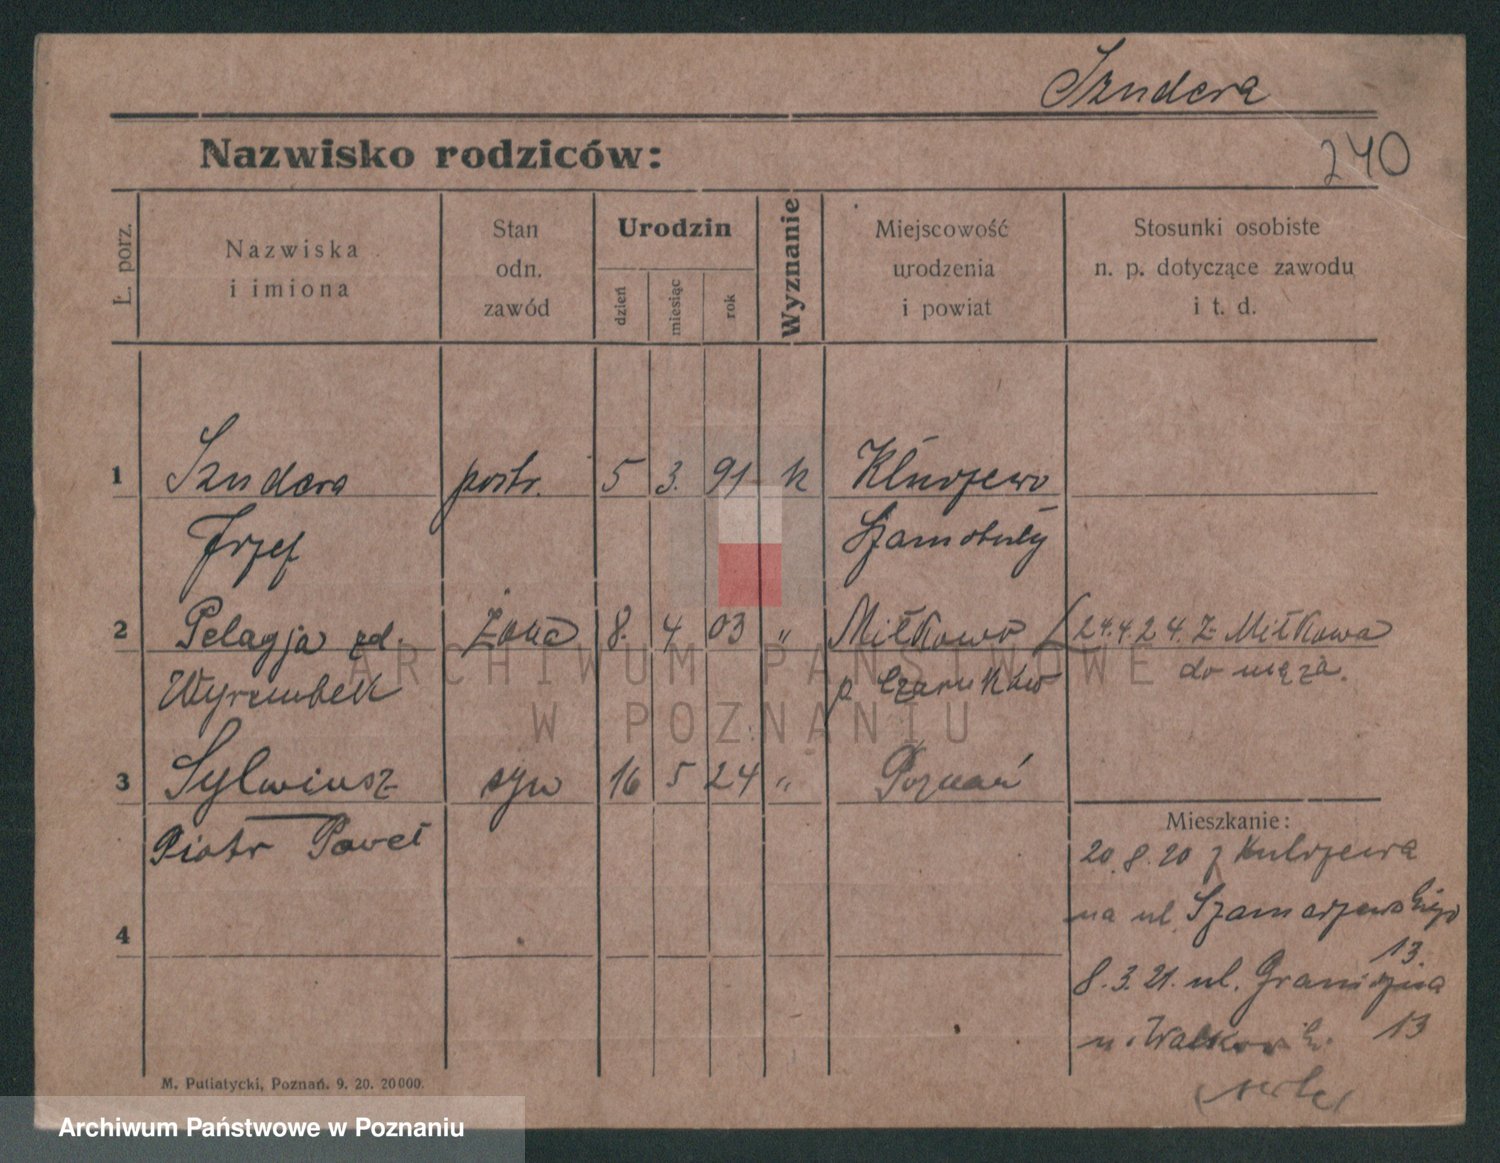 Szudera
240
Nazwisko rodziców:
Ł. porz.
Nazwiska i imiona
Stan odn. zawód
Urodzin
dzień
miesiąc
rok
Wyznanie
Miejscowość urodzenia i powiat
Stosunki osobiste n. p. dotyczące zawodu i t. d.
1 Szudera postr. 5 3. 91 k
Józef Szamotuły
2 Pelagja zd. żona 8. 4 03 " Miłkowo 24.4.24. z Miłkowa
p Czarnków do męża.
3 Sylwiusz syn 16 5 24 " Poznań
Piotr Paweł
Mieszkanie:
20.8.20 z
na ul. Szamarzewskiego
13.
4
8.3.21. ul. Graniczna
13
u.
M. Putiatycki, Poznań. 9. 20. 20000.
ARCHIWUM PAŃSTWOWE
W POZNANIU
Archiwum Państwowe w Poznaniu